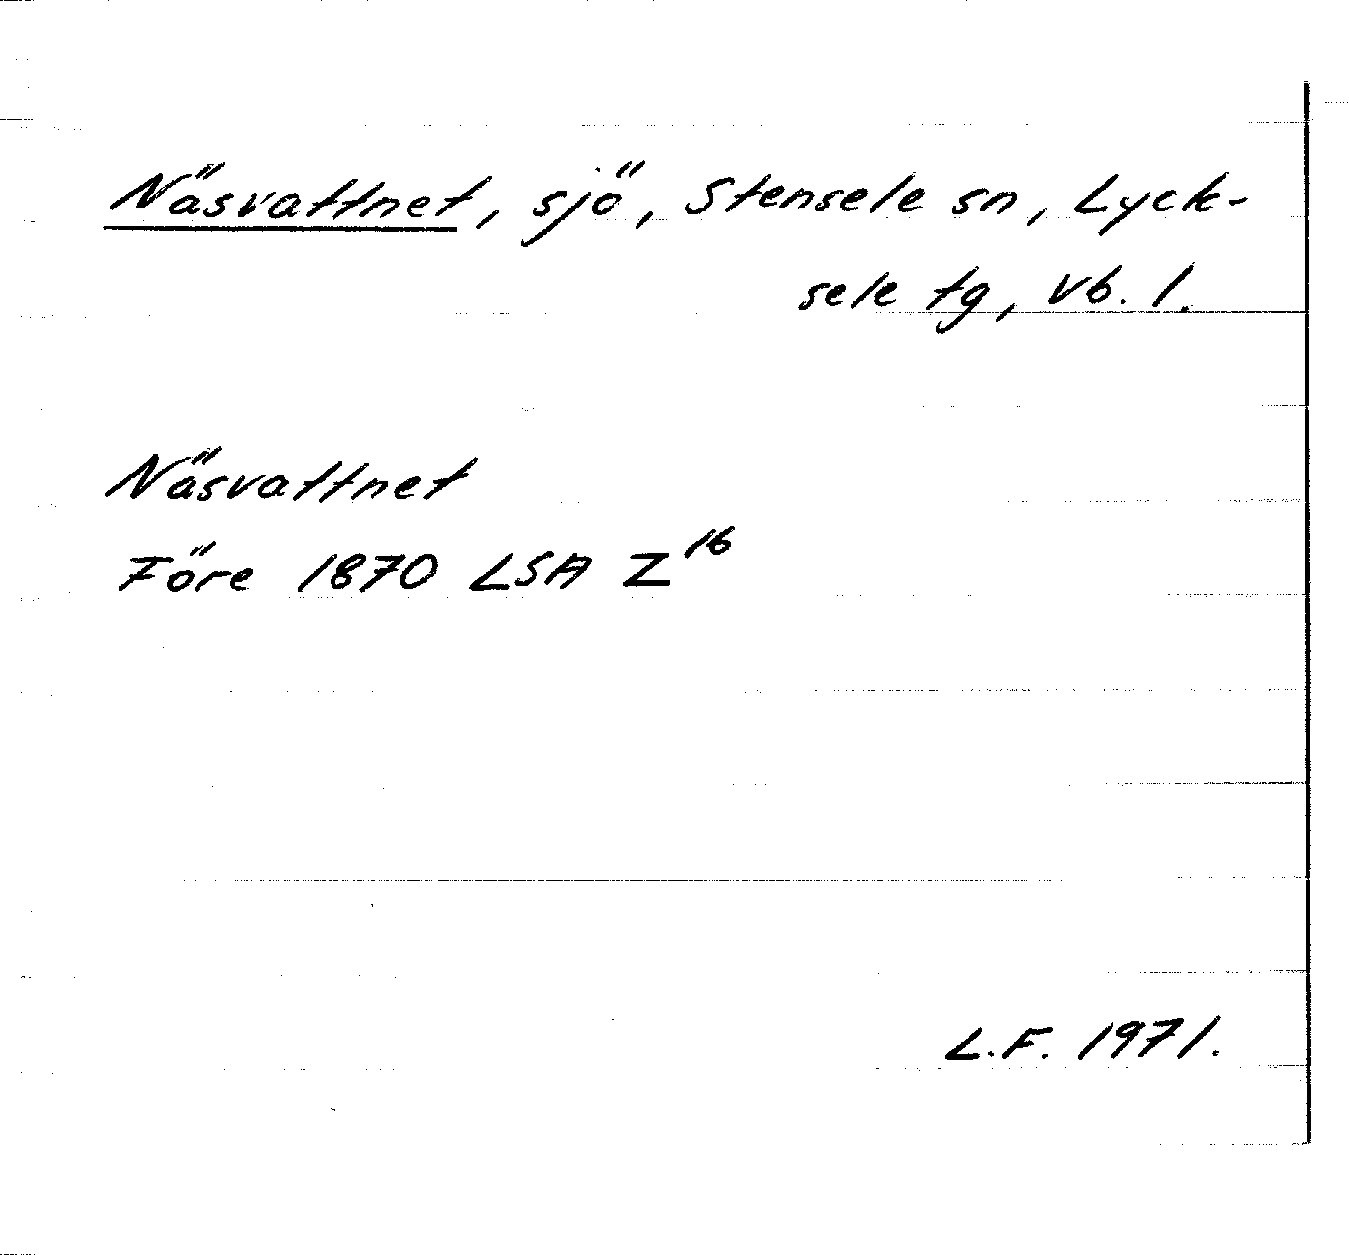 Näsvattnet, sjö, Stensele sn, Lyck-
sele tg, Vb. l.
Näsvattnet
Före 1870 LSA Z16
L.F. 1971.